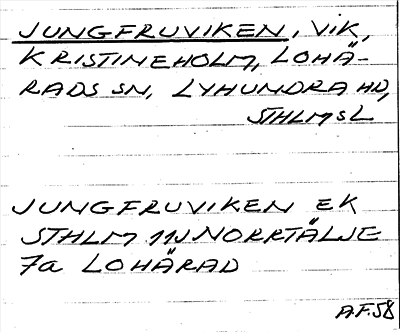 JUNGFRUVIKEN, VIK,
KRISTINEHOLM, LOHÄ-
RADS SN, LYHUNDRA HD,
STHLMS L
JUNGFRUVIKEN EK
STHLM 11J NORRTÄLJE
7a LOHÄRAD
A.F. 58